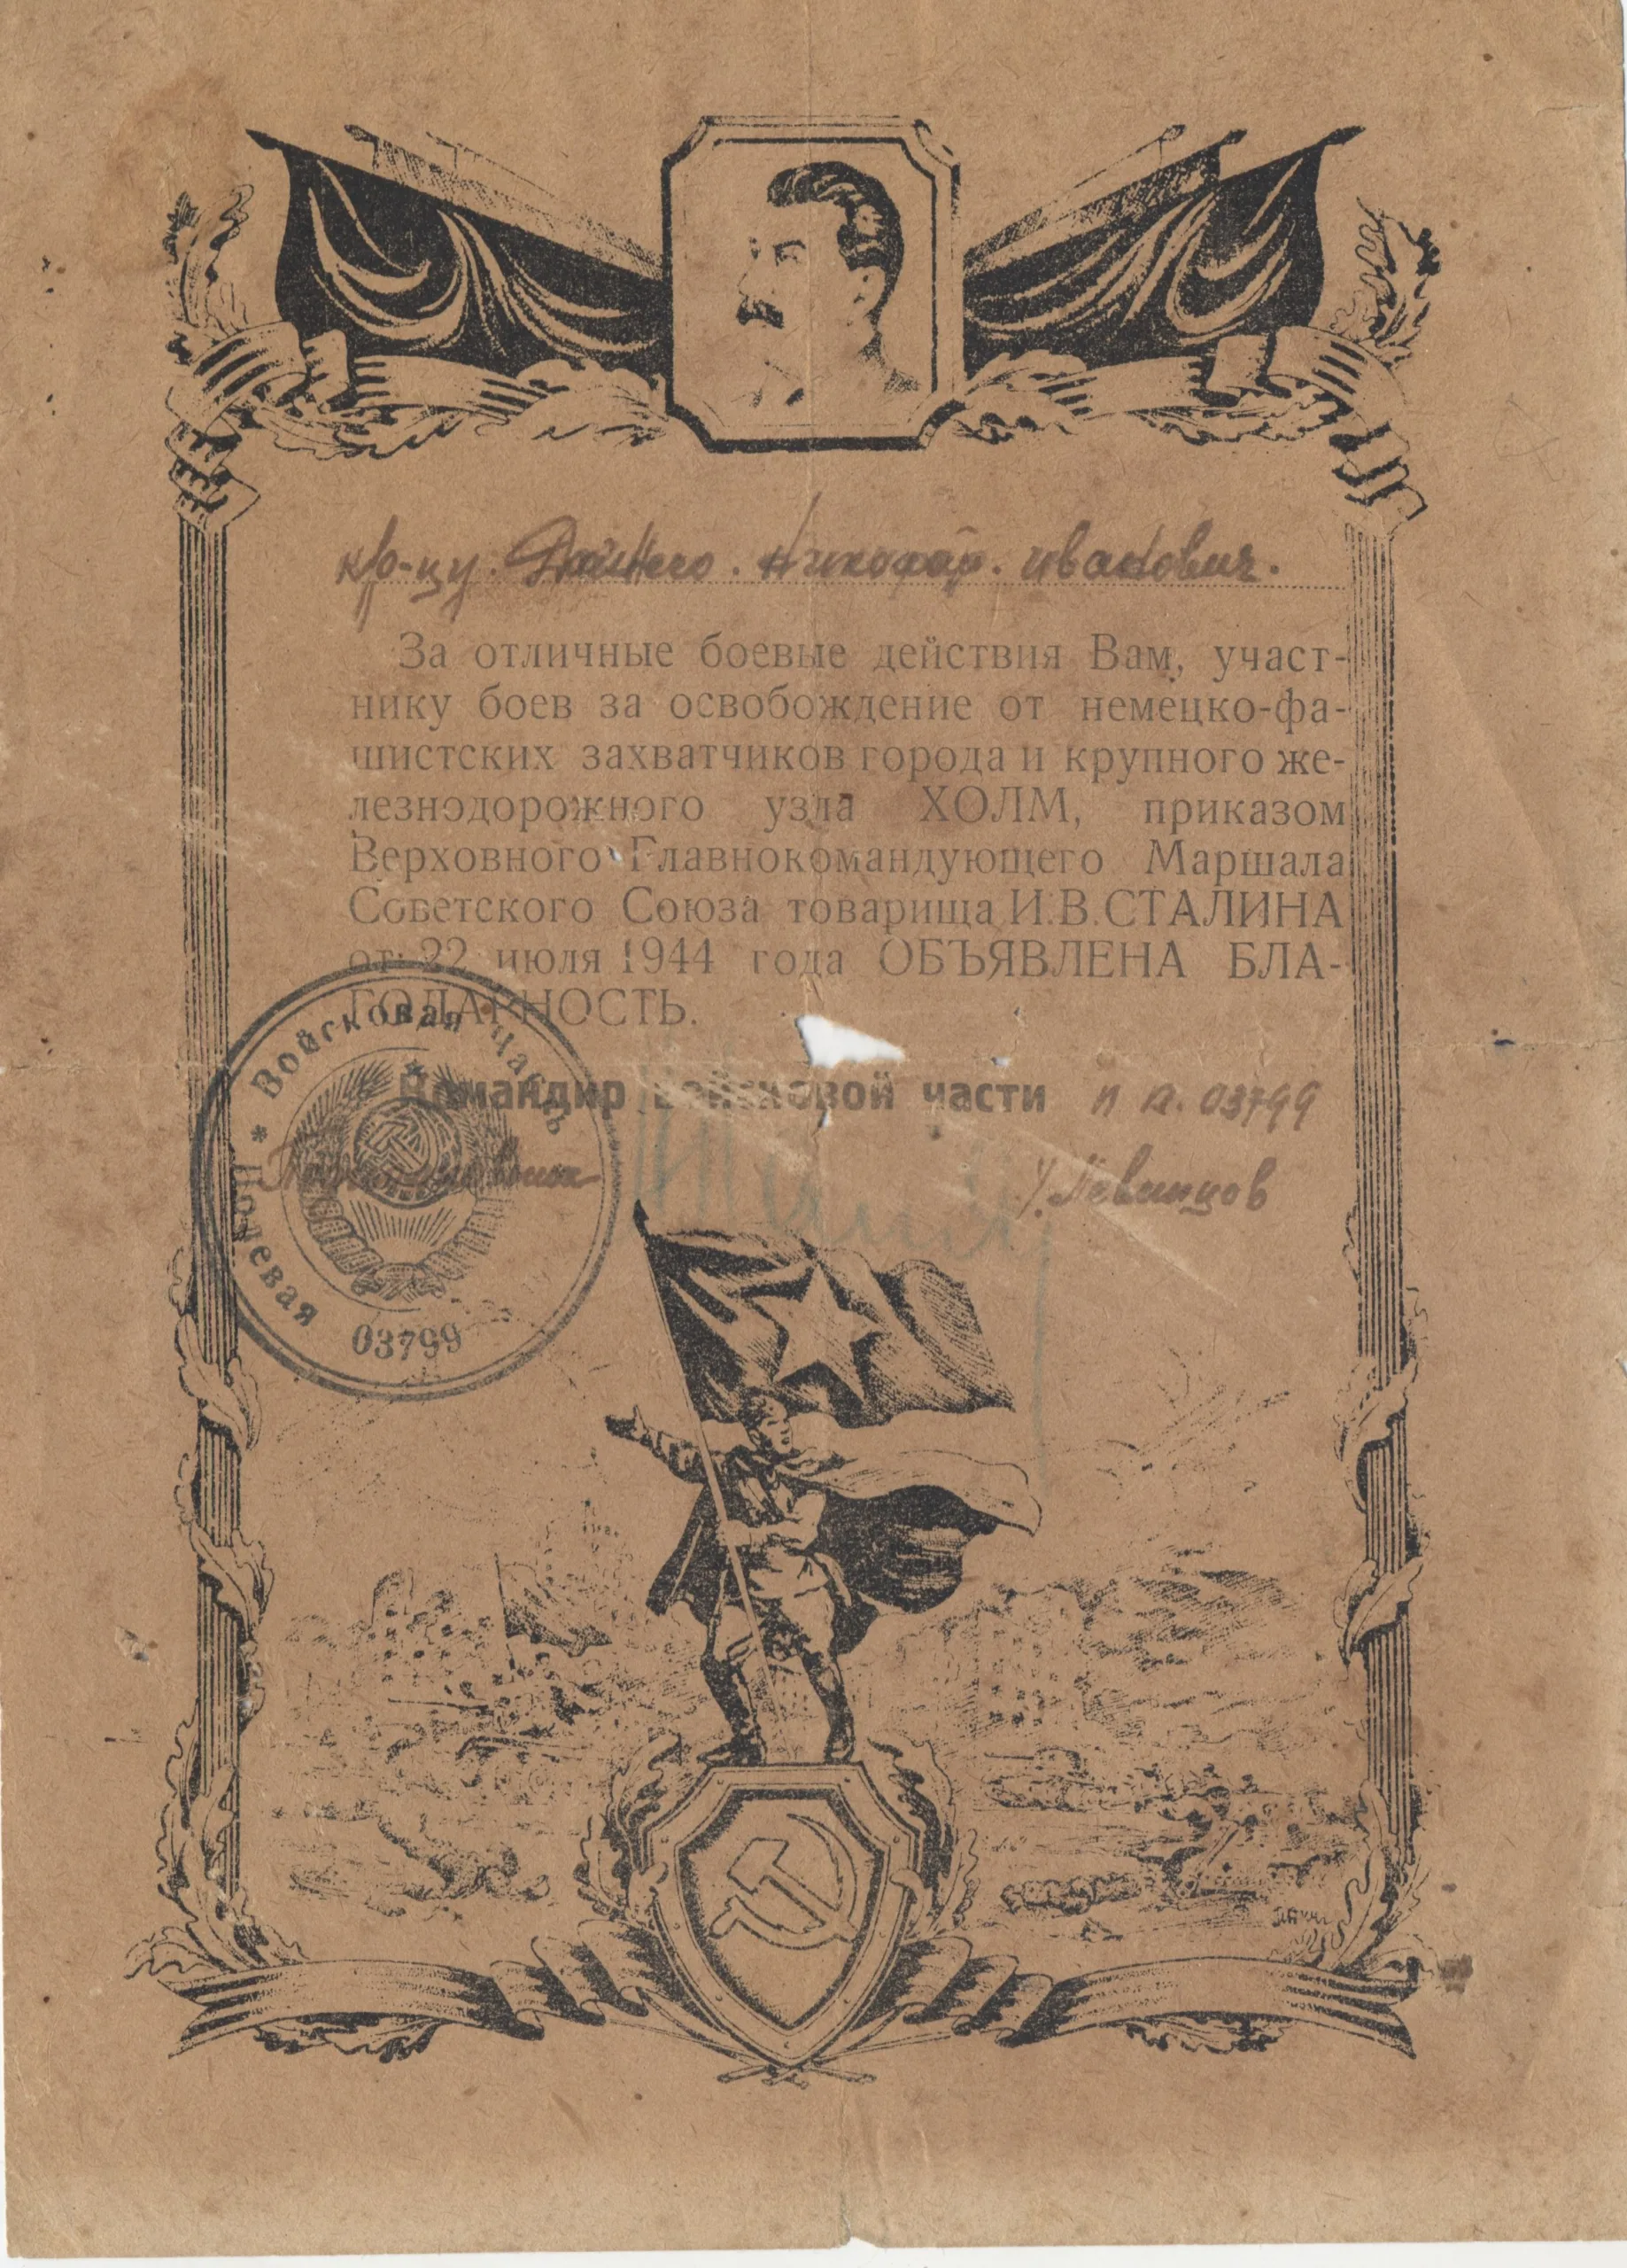 кр-цу. Николай. Иванович.
За отличные боевые действия Вам, участ-
нику боев за освобождение от немецко-фа-
шистских захватчиков города и крупного же-
лезнодорожного узла ХОЛМ, приказом
Верховного Главнокомандующего Маршала
Советского Союза товарища И.В.СТАЛИНА
от 22 июля 1944 года ОБЪЯВЛЕНА БЛА-
ГОДАРНОСТЬ.
Командир войсковой части п п. 03799
Войсковая часть * Полевая
03799